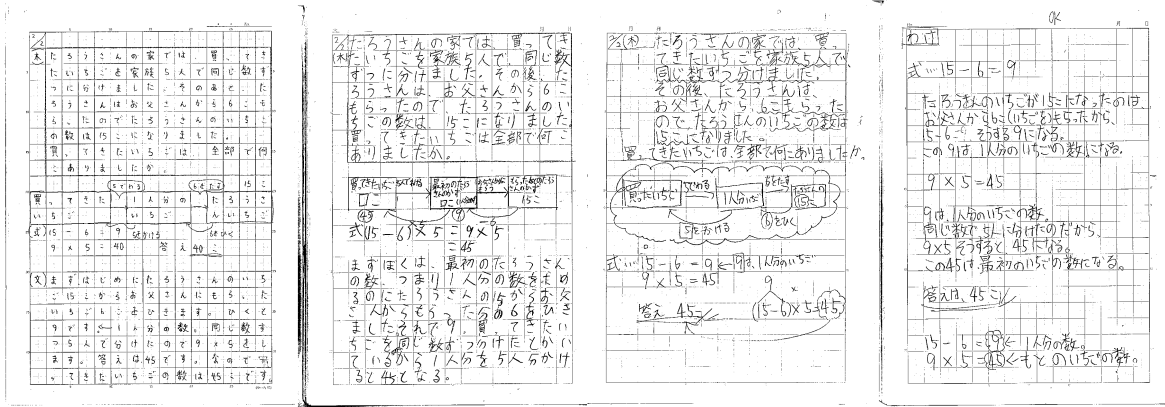 2/2
(木)
たろうさんの家では、買ってき
たいちごを家族5人で同じ数ず
つに分けました。そのあと、た
ろうさんはお父さんから6こも
らったのでたろうさんのいちご
の数は15こになりました。
買ってきたいちごは、全部で何
こありましたか。
5でわる 6をたす 15こ
買ってきた 1人分の たろうさ
いちご いちご んいちご
5をかける 6をひく
(式) 15-6=9
9×5=40 答え 40こ
(文) まずはじめにたろうさんのいち
ご15こからお父さんにもらった
いちご6こをひきます。ひくと
9です←1人分の数。同じ数ず
つ5人で分けたので9×5をし
ます。答えは45です。なので買
ってきたいちごの数は45こです。
2/2
(木)
たろうさんの家では、買ってき
たいちごを家族5人で、同じ数
ずつに分けました。その後、た
ろうさんは、お父さんから6こ
もらったので、たろうさんのい
ちごの数は、15こになりました。
買ってきたいちごは全部で何こ
ありましたか。
買ってきたいちご 5人で分ける
□こ □こ 15こ
45 9
式(15-6)×5=9×5
=45
まずぼくは、最初のたろうさん
の数、つまり1人分の数をもとめ
るのにたろうさんの15からお父
さんからもらった分の6をひき
ました。それで9。買ってきたい
ちごを同じ数ずつ分けたとかい
ているから1人分を5人分かけ
ると45となる。
2/2(木) たろうさんの家では、買っ
てきたいちごを家族5人で、
同じ数ずつ分けました。
その後、たろうさんは、
お父さんから、6こもらった
ので、たろうさんのいちごの数は
15こになりました。
買ってきたいちごは、全部で何こありましたか。
5でわる 6をたす
買ったいちご 1人分いちご たろうさんの15こ
5をかける 6をひく
式…15-6=9←9は、1人分のいちご
9×5=45
9
答え 45こ (15-6)×5=45
OK
わけ
式…15-6=9
たろうさんのいちごが15こになったのは、
お父さんから6こ(いちご)をもらったから、
15-6=9 そうする9になる。
この9は、1人分のいちごの数になる。
9×5=45
9は、1人分のいちごの数。
同じ数で5人に分けたのだから、
9×5 そうすると、45になる。
この45は、最初のいちごの数になる。
答えは、45こ
15-6=9←1人分の数。
9×5=45←もとのいちごの数。